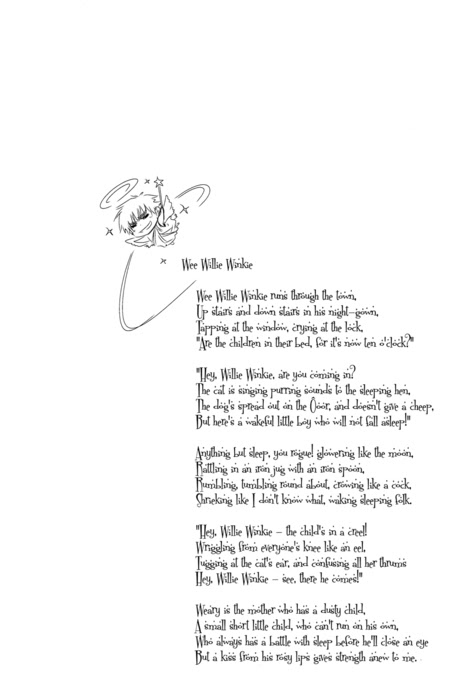 Wee Willie Winkie
Wee Willie Winkie runs through the town,
Up stairs and down stairs in his night-gown,
Tapping at the window, crying at the lock,
"Are the children in their bed, for it's now ten o'clock?"
"Hey, Willie Winkie, are you coming in?
The cat is singing purring sounds to the sleeping hen,
The dog's spread out on the floor, and doesn't give a cheep,
But here's a wakeful little boy who will not fall asleep!"
Anything but sleep, you rogue! glowering like the moon,
Rattling in an iron jug with an iron spoon,
Rumbling, tumbling round about, crowing like a cock,
Shrieking like I don't know what, waking sleeping folk.
"Hey, Willie Winkie - the child's in a creel!
Wriggling from everyone's knee like an eel,
Tugging at the cat's ear, and confusing all her thrums
Hey, Willie Winkie - see, there he comes!"
Weary is the mother who has a dusty child,
A small short little child, who can't run on his own,
Who always has a battle with sleep before he'll close an eye
But a kiss from his rosy lips gives strength anew to me.